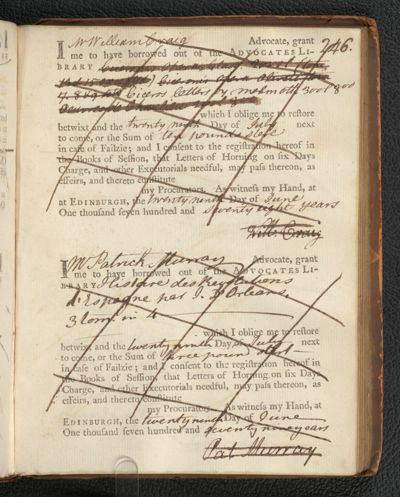 246.
I Mr William Craig Advocate, grant
me to have borrowed out of the ADVOCATES LI-
BRARY
Ciceros Letters by Melmoth 3 vol 8vo
which I oblige me to restore
betwixt and the twenty ninth Day of July next
to come, or the Sum of ten pounds sterl
in case of Failzie; and I consent to the registration hereof in
the Books of Session, that Letters of Horning on six Days
Charge, and other Executorials needful, may pass thereon, as
effeirs, and thereto constitute
my Procurators. As witness my Hand, at
at EDINBURGH, the twenty ninth Day of June
One thousand seven hundred and seventy eight years
Will: Craig
I Mr Patrick Murray Advocate, grant
me to have borrowed out of the ADVOCATES LI-
BRARY Histoire des Revolutions
d'Espagne par J. D'Orleans,
3 tom. in 4
which I oblige me to restore
betwixt and the twenty ninth Day of July next
to come, or the Sum of three pound sterl
in case of Failzie; and I consent to the registration hereof in
the Books of Session, that Letters of Horning on six Days
Charge, and other Executorials needful, may pass thereon, as
effeirs, and thereto constitute
my Procurators. As witness my Hand, at
EDINBURGH, the twenty ninth Day of June
One thousand seven hundred and seventy nine years
Pat Murray